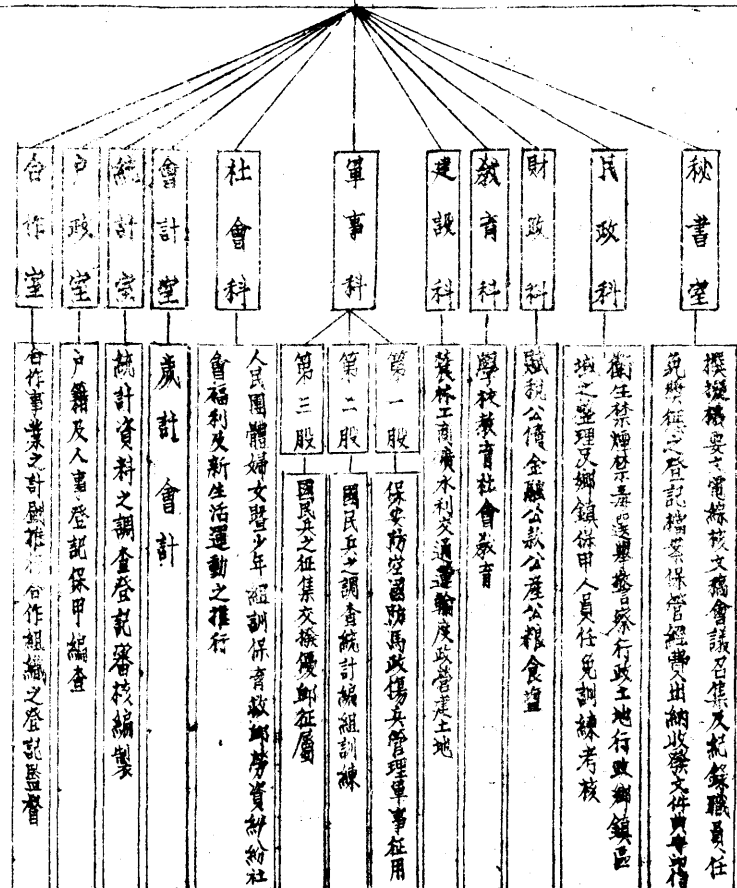 秘書室
撰擬機要文電綜核文稿會議召集及紀錄職員任
免獎懲之登記檔案保管經費出納收發文件典守印信
民政科
衛生禁煙禁毒選舉警察行政土地行政鄉鎮區
域之整理及鄉鎮保甲人員任免訓練考核
財政科
賦稅公債金融公款公產公糧食鹽
教育科
學校教育社會教育
建設科
農林工商礦水利交通運輸度政營建土地
軍事科
第一股
保安防空國防馬政傷兵管理軍事征用
第二股
國民兵之調查統計編組訓練
第三股
國民兵之征集交撥優卹征屬
社會科
人民團體婦女暨少年組訓保育救卹勞資糾紛社
會福利及新生活運動之推行
會計室
歲計會計
統計室
統計資料之調查登記審核編製
戶政室
戶籍及人事登記保甲編查
合作室
合作事業之計劃推行合作組織之登記監督